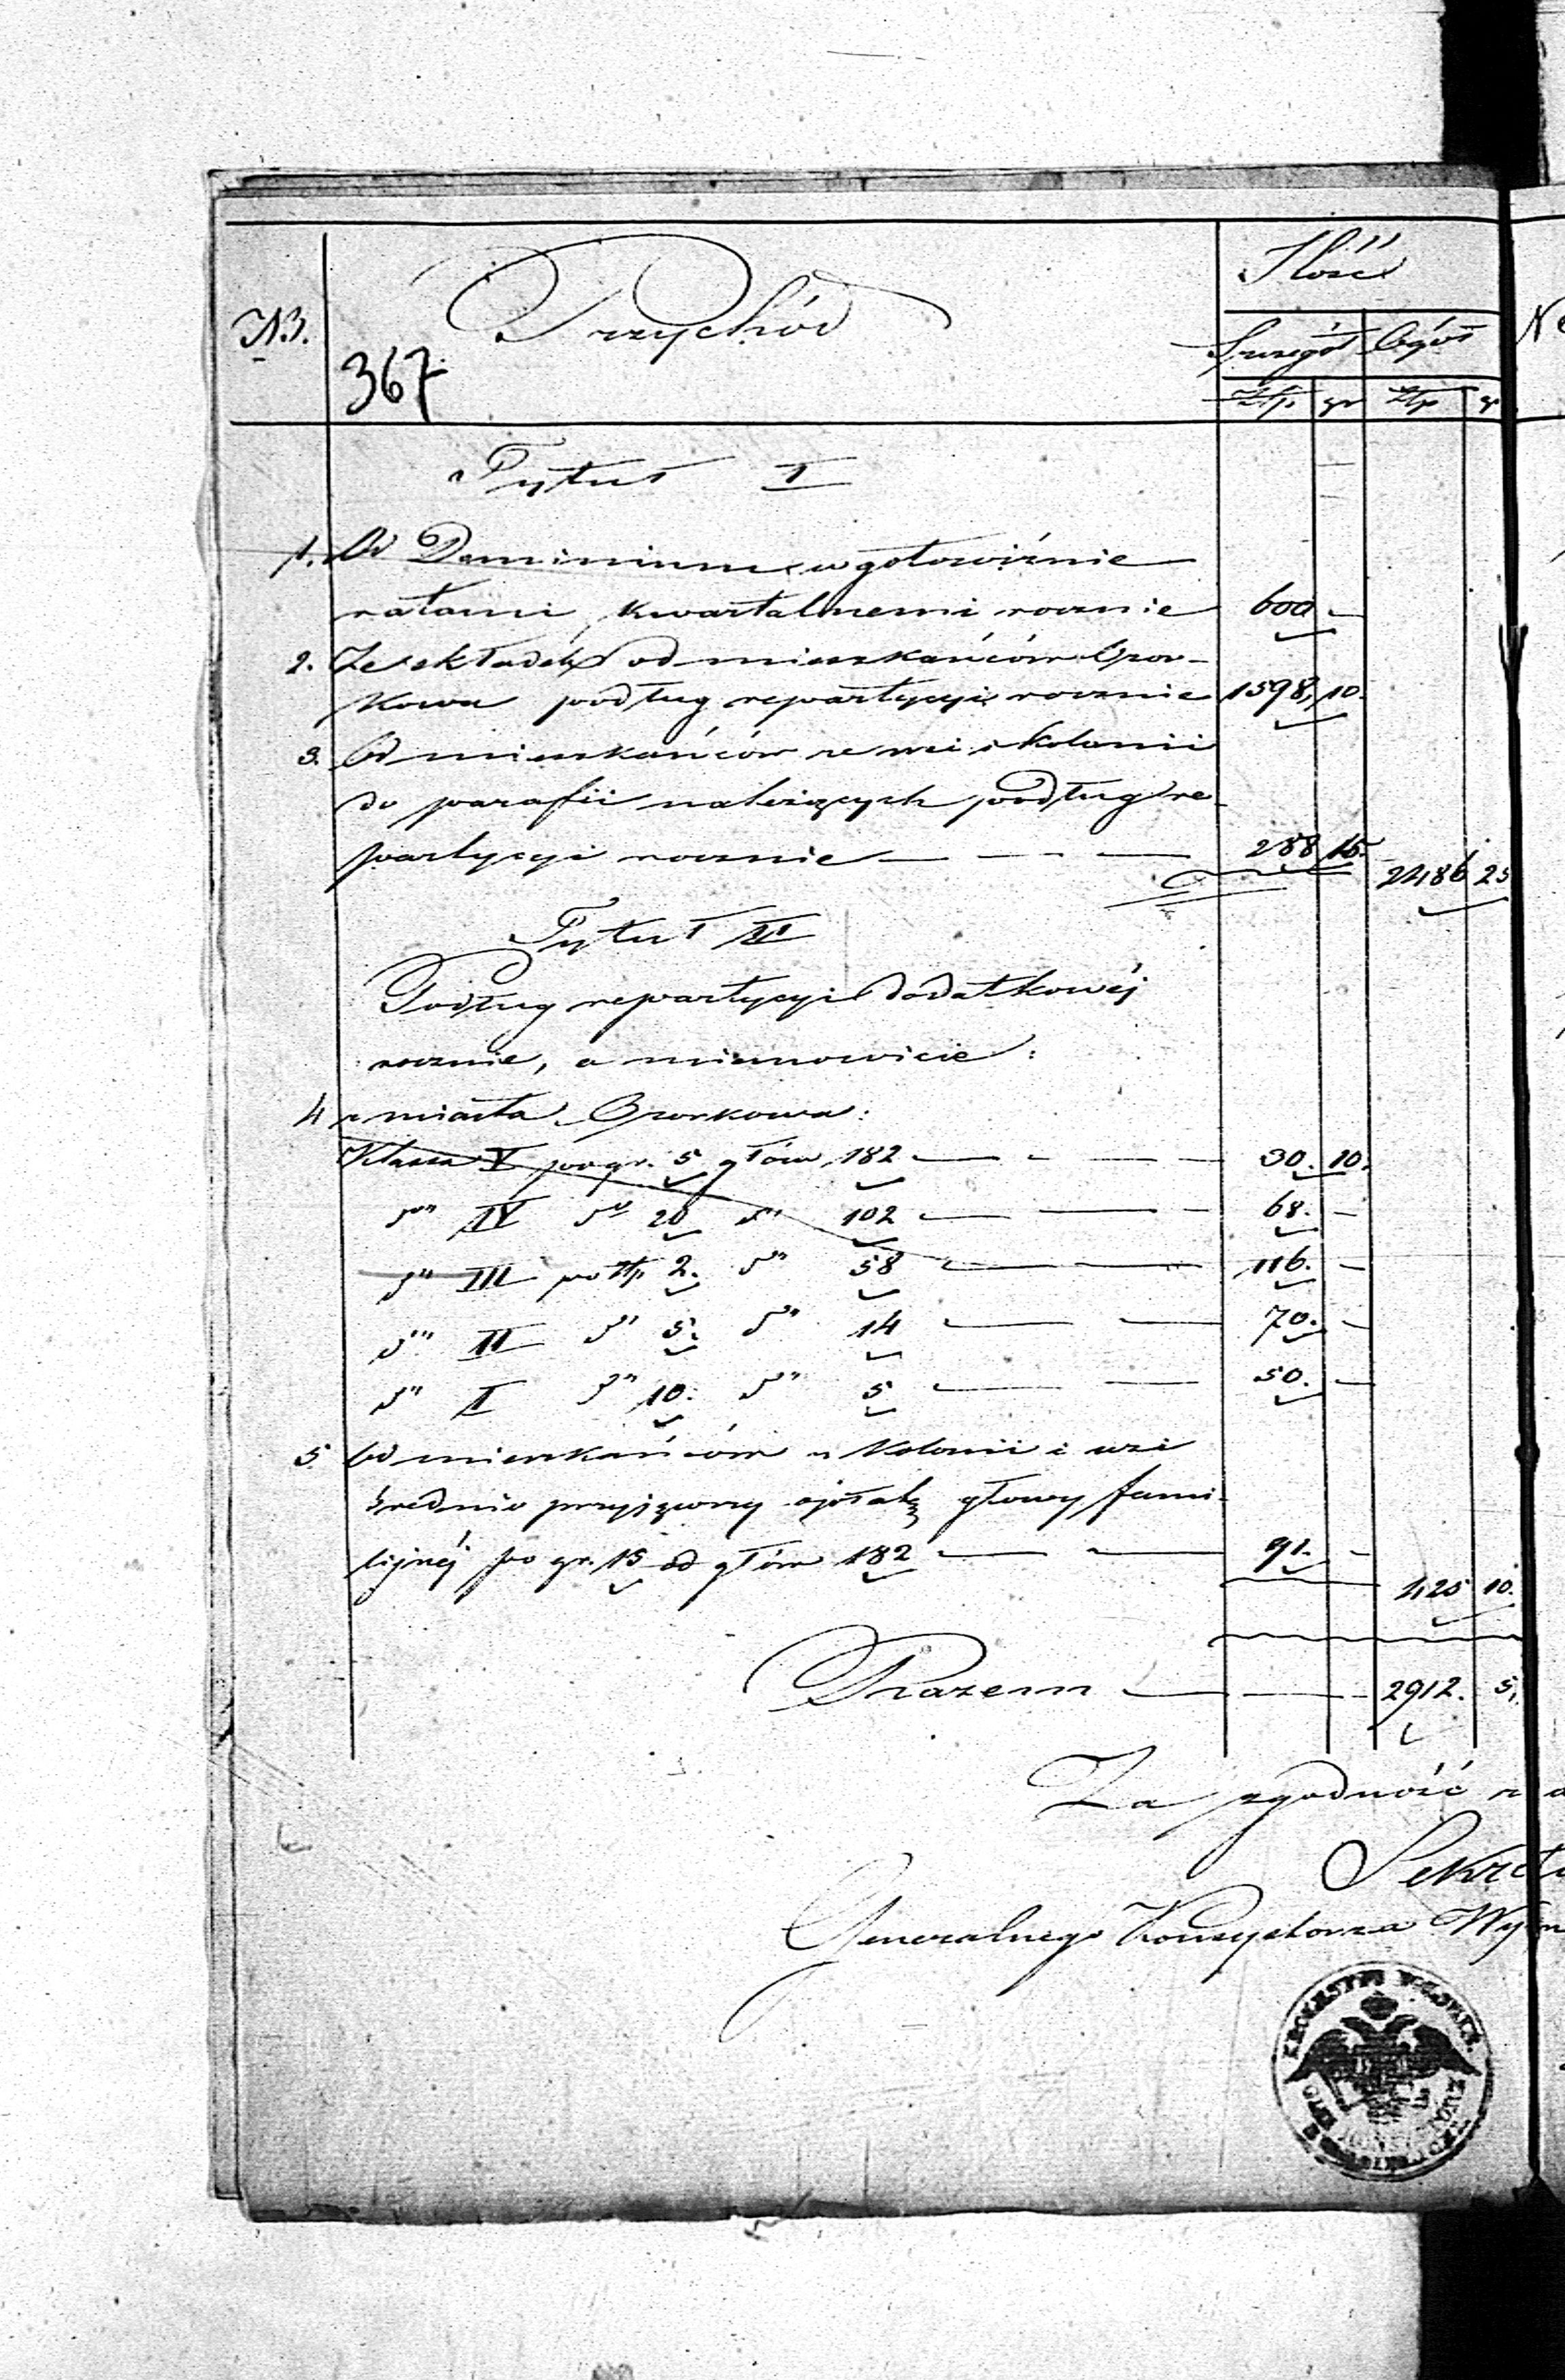 Ilość
No.
Przychód
Szczegół Ogół
367
Złp gr Złp gr
Tytuł I
1. Od Dominium w gotowiźnie
ratami kwartalnemi rocznie 600 —
2. Ze składek od mieszkańców Ozor-
kowa podług repartycyi rocznie 1598, 10.
3. Od mieszkańców ze wsi i kolonii
do parafii należących podług re-
partycyi rocznie — — — 288 15. 2486 25
Tytuł II
Podług repartycyi dodatkowéj
rocznie, a mianowicie:
4 z miasta Ozorkowa:
Klassa V po gr. 5 głów 182 — — — 30. 10.
d'' IV d'' 20 d'' 102 — — — 68. —
d'' III po złp 2. d'' 58 — — 116. —
d'' II d'' 5. d'' 14 — — 70. —
d'' I d'' 10. d'' 5 — — 50. —
5. Od mieszkańców z kolonii i wsi
średnio przyjąwszy opłatę głowy fami-
lijnéj po gr. 15 od głów 182 — — 91. —
425 10.
Razem — — — 2912. 5.
Za zgodność z
Generalnego Konsystorza
KROLESTWO POLSKIE